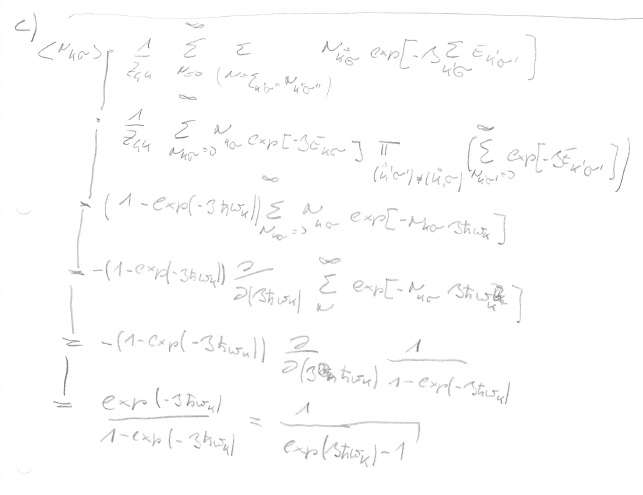 c)
⟨N_{kσ}⟩ = 1/Z_{GK} Σ_{N=0}^{∞} Σ_{(N=Σ_{k''σ''} N_{k''σ''})} N_{kσ} exp[-β Σ_{k'σ'} E_{k'σ'}]
= 1/Z_{GK} Σ_{N_{kσ}=0}^{∞} N_{kσ} exp[-βE_{kσ}] Π_{(k'σ')≠(k,σ)} (Σ_{N_{k'σ'}=0}^{∞} exp[-βE_{k'σ'}])
= (1-exp(-βħω_k)) Σ_{N_{kσ}=0}^{∞} N_{kσ} exp[-N_{kσ} βħω_k]
= -(1-exp(-βħω_k)) ∂/∂(βħω_k) Σ_{N}^{∞} exp[-N_{kσ} βħω_k]
= -(1-exp(-βħω_k)) ∂/∂(βħω_k) 1/(1-exp(-βħω_k))
= exp(-βħω_k)/(1-exp(-βħω_k)) = 1/(exp(βħω_k)-1)